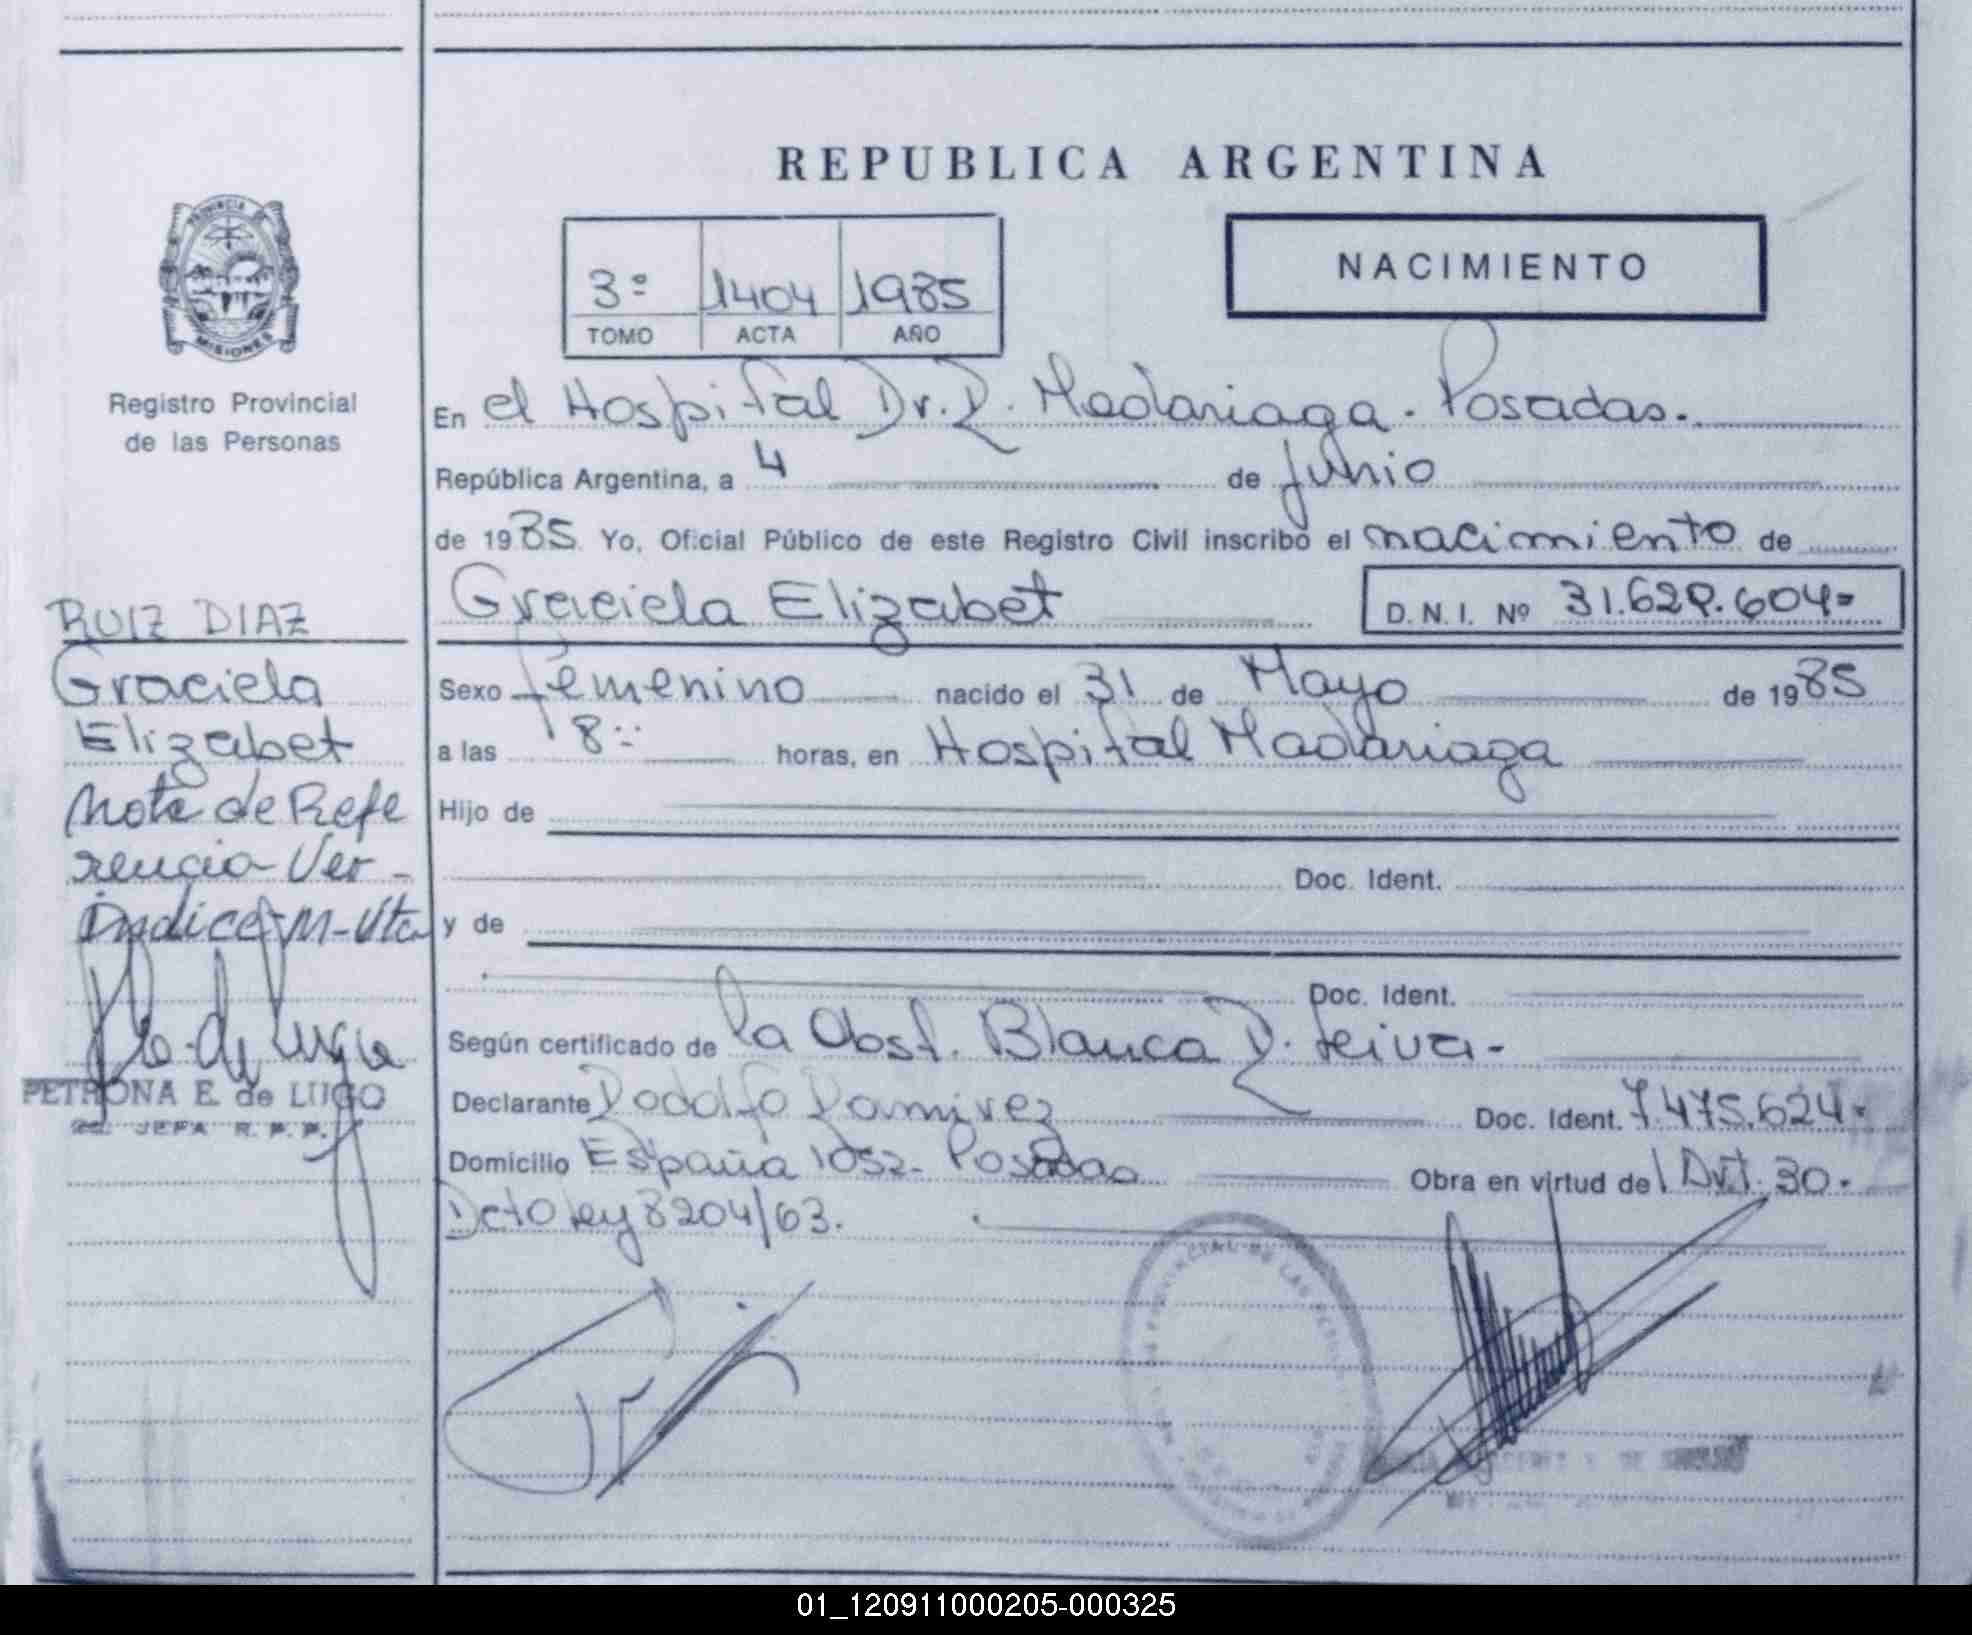 REPUBLICA ARGENTINA
PROVINCIA DE
MISIONES
Registro Provincial
de las Personas
3º 1404 1985
TOMO ACTA AÑO
NACIMIENTO
En el Hospital Dr. R. Madariaga. Posadas.
República Argentina, a 4 de Junio
de 1985 Yo, Oficial Público de este Registro Civil inscribo el nacimiento de
Graciela Elizabet D. N. I. Nº 31.629.604=
Sexo femenino nacido el 31 de Mayo de 1985
a las 8 horas, en Hospital Madariaga
Hijo de
Doc. Ident.
y de
Doc. Ident.
Según certificado de la Obst. Blanca R. Leiva-
Declarante Rodolfo Ramirez Doc. Ident. 7.475.624-
Domicilio España 1052- Posadas Obra en virtud del Art. 30.
Dcto ley 8204/63.
RUIZ DIAZ
Graciela
Elizabet
Nota de Refe
rencia Ver -
Indice-M-Vta
PETRONA E. de LUGO
JEFA R. P. P.
01_120911000205-000325